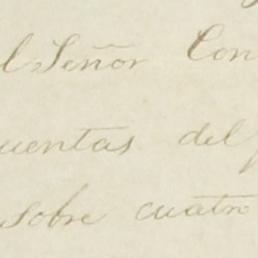 l Señor Con
uentas del
sobre cuatro